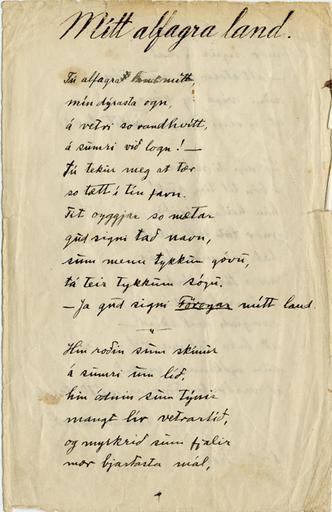 Mítt alfagra land.
Tú alfagra land mítt,
mín dýrasta ogn,
á vetri so randhvítt,
á sumri við logn! —
Tú tekur meg at tær
so tætt í tín favn.
Tit oyggjar so mætar
gud signi tað navn,
sum menn tykkum góvu,
tá teir tykkum sógu.
— Ja gud signi Föroyar mítt land.
— " —
Hin roðin sum skínur
á sumri um líð,
hin ódnin sum týnir
mangt lív vetrartíð,
og myrkrið sum fjalir
mær bjartasta mál,